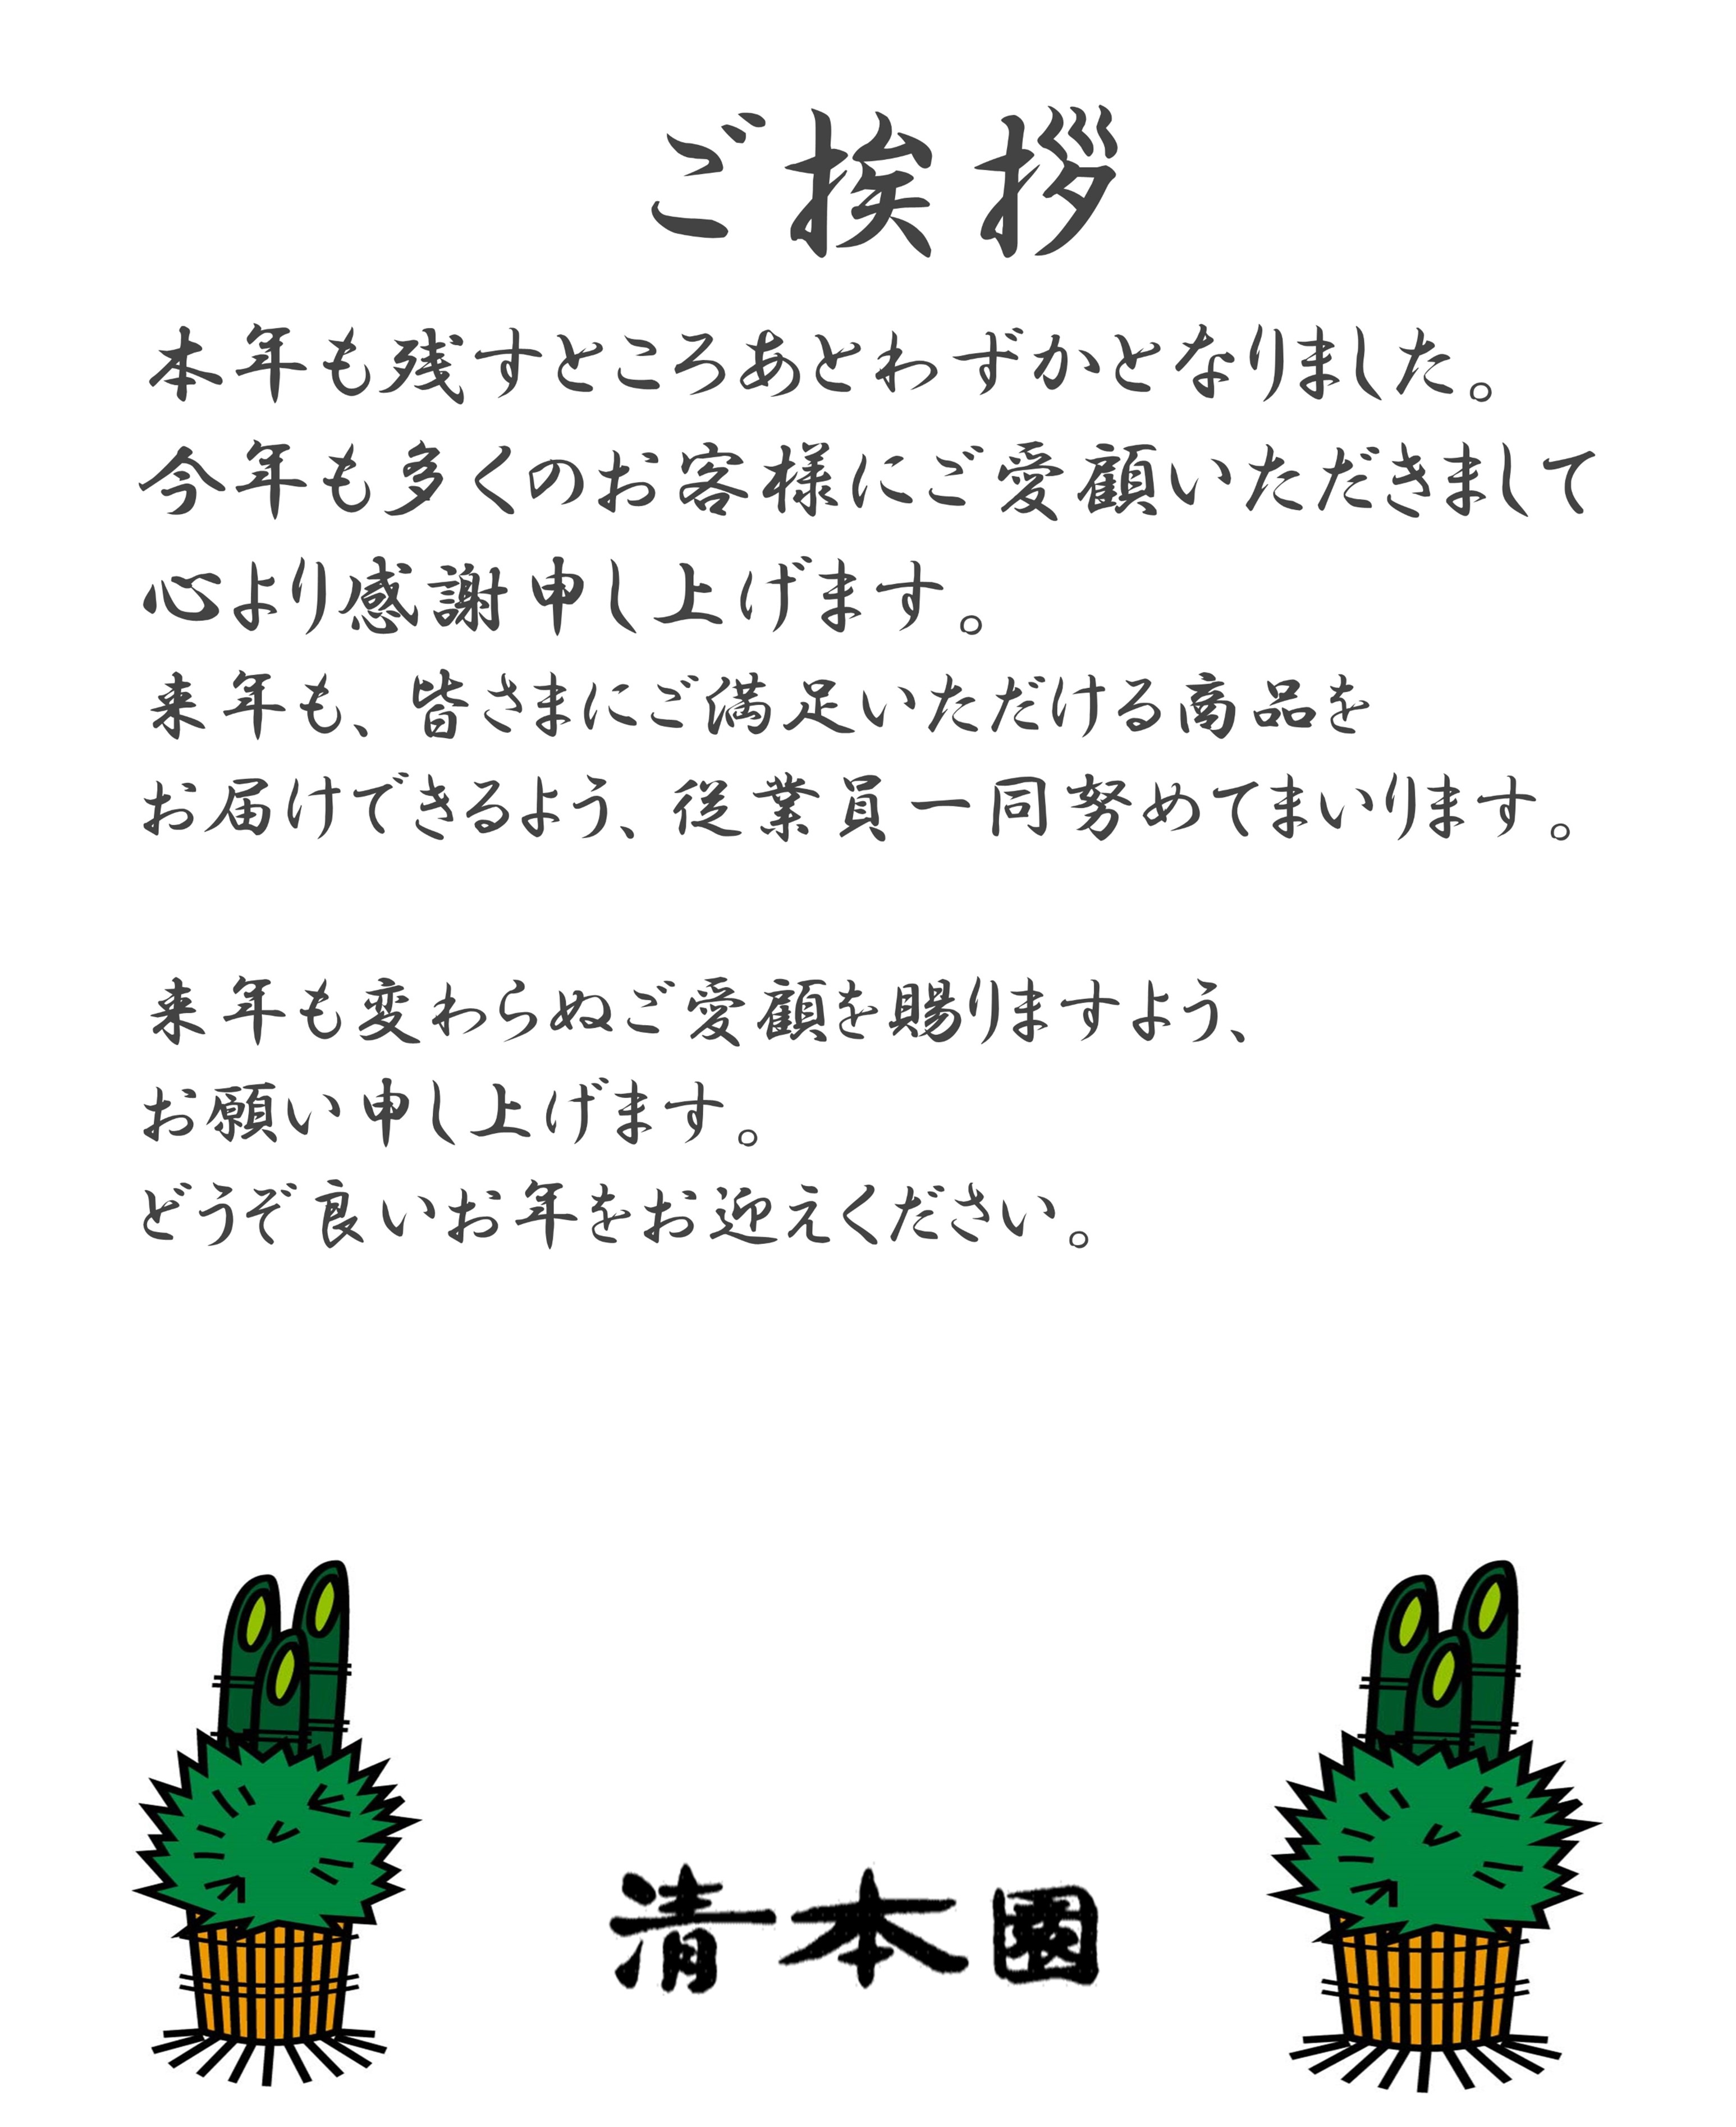 ご挨拶
本年も残すところあとわずかとなりました。
今年も多くのお客様にご愛顧いただきまして
心より感謝申し上げます。
来年も、皆さまにご満足いただける商品を
お届けできるよう、従業員一同努めてまいります。
来年も変わらぬご愛顧を賜りますよう、
お願い申し上げます。
どうぞ良いお年をお迎えください。
清本園